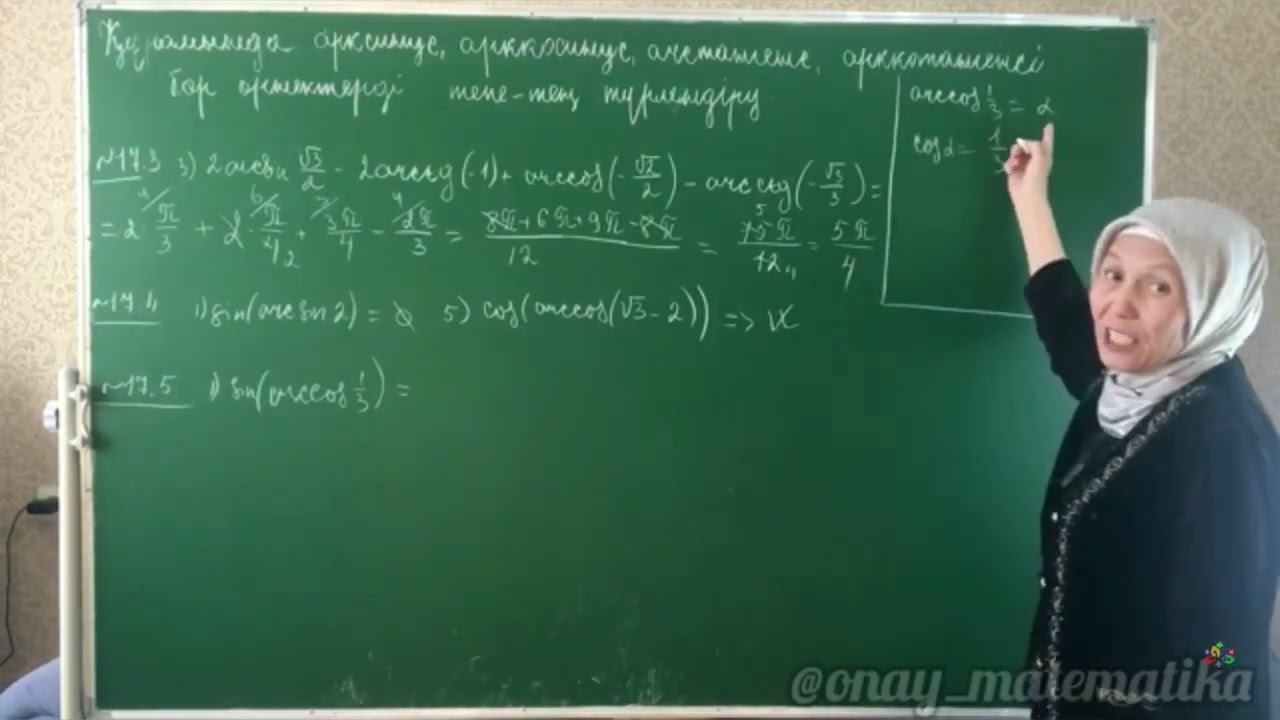 Құрамында арксинус, арккосинус, арктангенс, арккотангенсі
бар өрнектерді тепе-тең түрлендіру
arccos 1/3 = α
cos α = 1/3
№17.3 3) 2 arcsin √3/2 - 2 arcctg(-1) + arccos(-√2/2) - arcctg(-√3/3) =
= 2·π/3 + 2·π/4 + 3π/4 - 2π/3 = (8π+6π+9π-8π)/12 = 15π/12 = 5π/4
№17.4 1) sin(arcsin 2) = ∅ 5) cos(arccos(√3-2)) =>
№17.5 1) sin(arccos 1/3) =
@onay_matematika